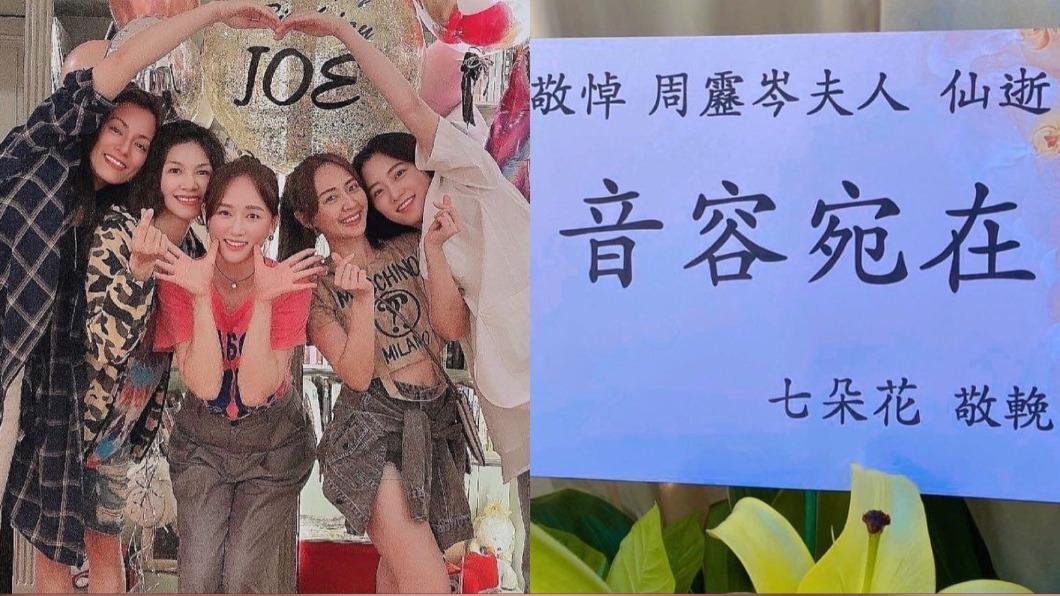 JOE
MOSCHINO
MILANO
敬悼 周靈岑夫人 仙逝
音容宛在
七朵花 敬輓